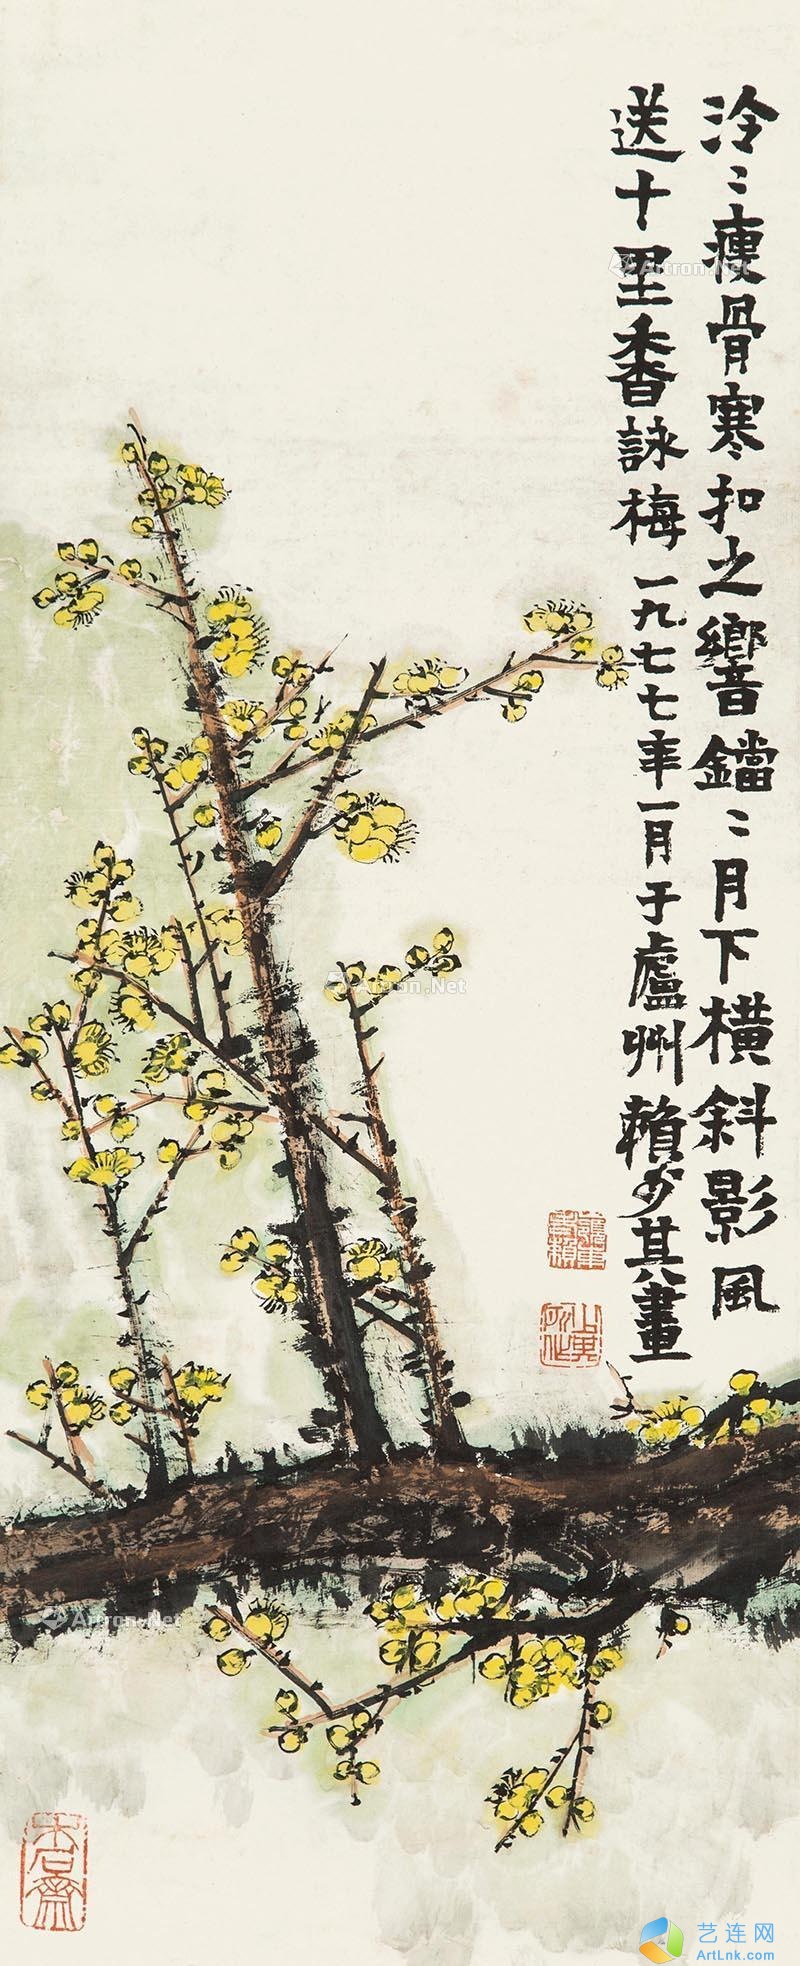 泠〻瘦骨寒扣之響鐺〻月下橫斜影風
送十里香詠梅一九七七年一月于廬州賴少其畫
木石齋
Artron.Net
Artron.Net
Artron.Net
艺连网
ArtLnk.com